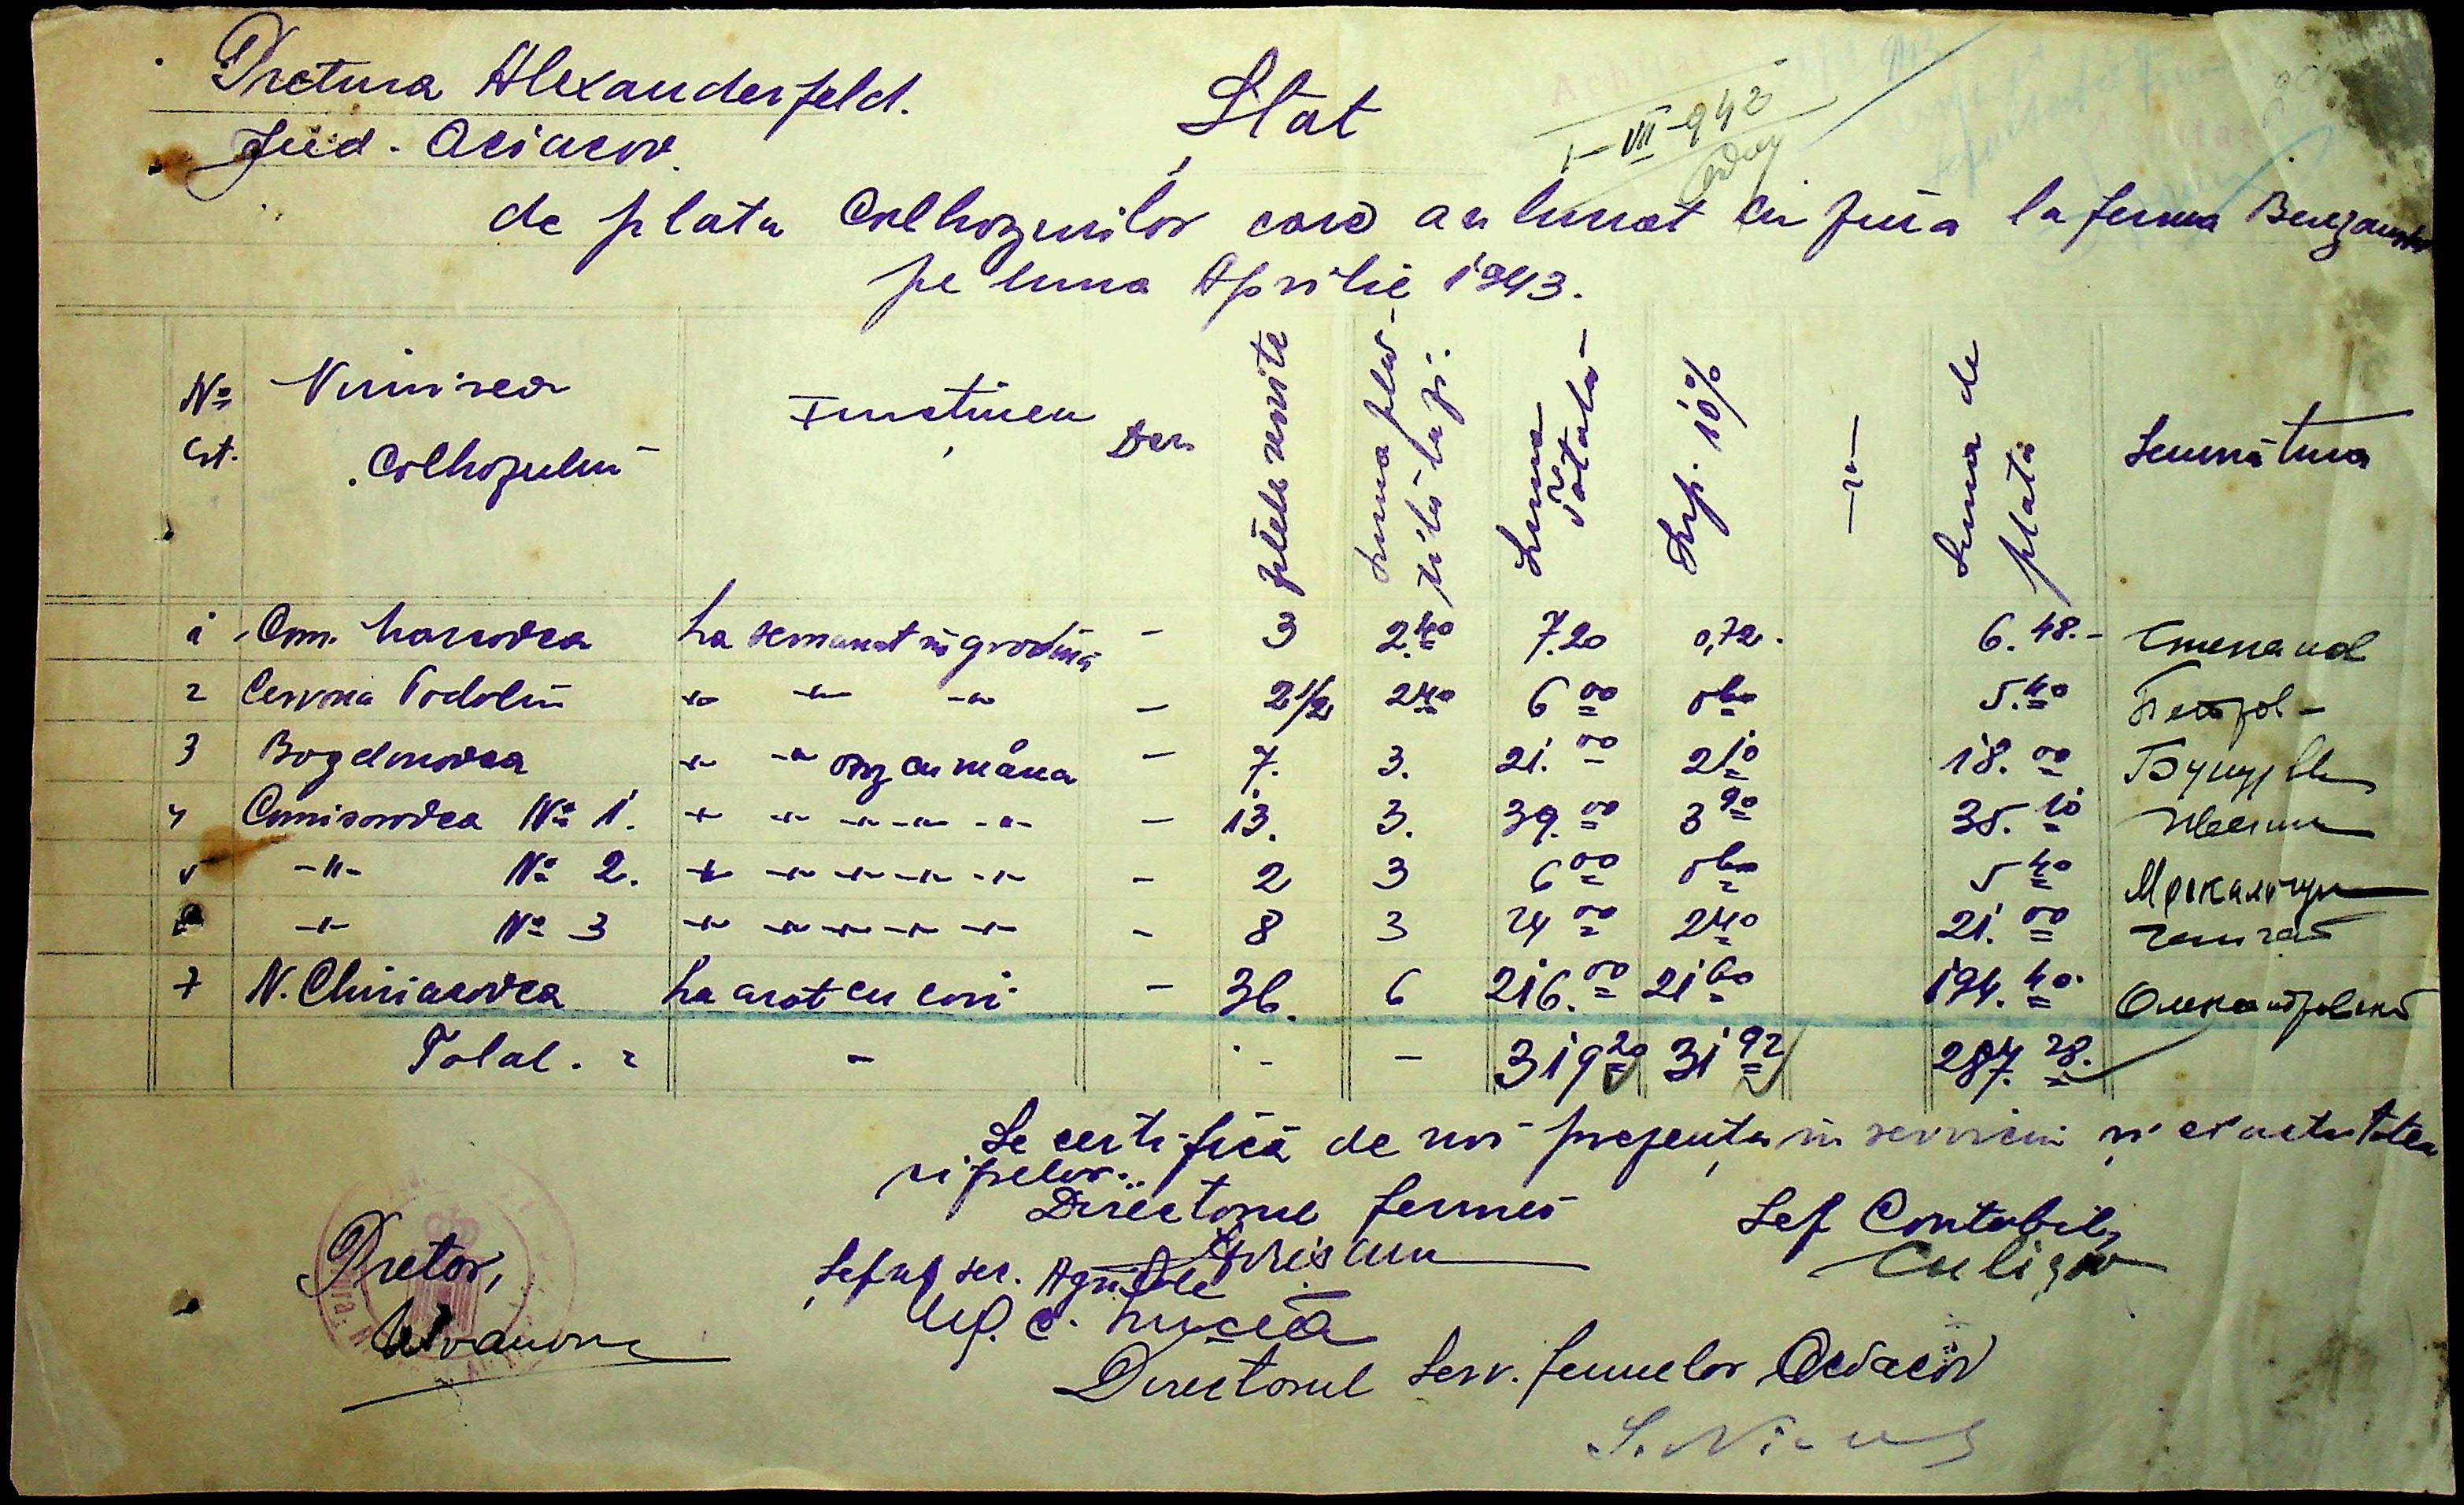 Pretura Alexanderfeld.
Jud. Oceacov.
Stat
I-VII-942
de plata Colhozurilor care au lucrat cu ziua la ferma
pe luna Aprilie 1943.
No Crt. Numirea Colhozului Functiunea Den Zilele muncite Suma plătită la zi. Suma Totală Imp. 10% -„- Suma de plată Semnătura
1 Com. La semanat in gradină - 3 2.40 7.20 0,72. 6.48.- Степанов
2 Cervona Podolia -„- -„- -„- - 2 1/2 2.40 6 00 0 60 5.40 Петров
3 Bogdanovca -„- -„- orz cu mâna - 7. 3. 21.00 2 10 18.00
4 Comisarovca No 1. -„- -„- -„- -„- -„- - 13. 3. 39.00 3 90 35.10
5 -„- No 2. -„- -„- -„- -„- -„- - 2 3 6 00 0 60 5 40
6 -„- No 3 -„- -„- -„- -„- -„- - 8 3 24 00 2 40 21.00
7 N. Chiriacovca La arat cu cai - 36. 6 216.00 21 60 194.40.
Total. = - - - 319 20 31 92 287.28.
Se certifică de noi prezența in serviciu și exactitatea
zilelor.
Directorul fermei
Șef Contabil,
Pretor,
Șeful ser. Agricole
Directorul Serv. fermelor Oceacov